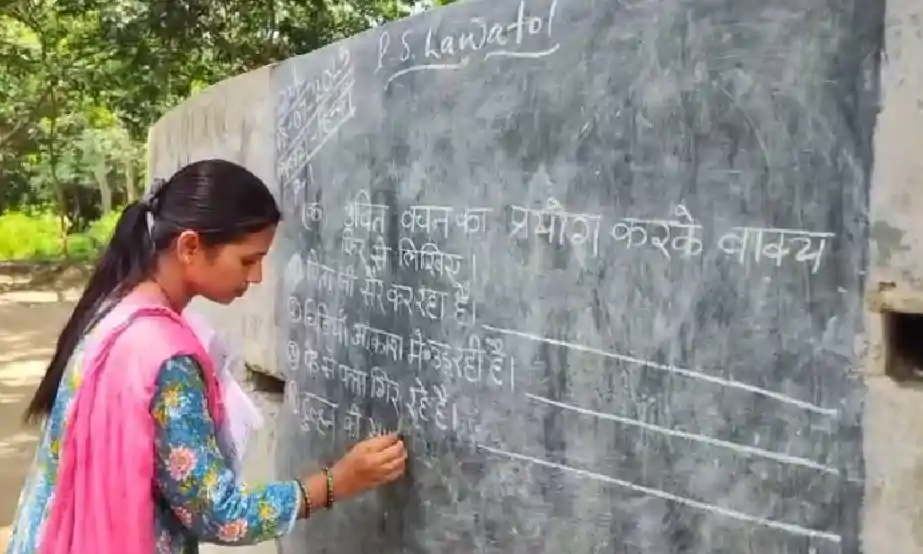 P.S. Lawatol
(क) उचित वचन का प्रयोग करके वाक्य
फिर से लिखिए।
पिता जी सैर कर रहा है।
चिड़ियाँ आकाश में उड़ रही है।
पेड़ से पत्ता गिर रहे है।
दुल्हन की